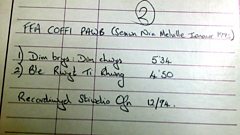 2
FFA COFFI PAWB (Seawn Nin Metalle Ionawr
1) Dim brys: Dim chwys 5'34
2) Ble Rwyt Ti Rhwng 4'50
Recordiwyd Stiwdio Ofn 12/94.